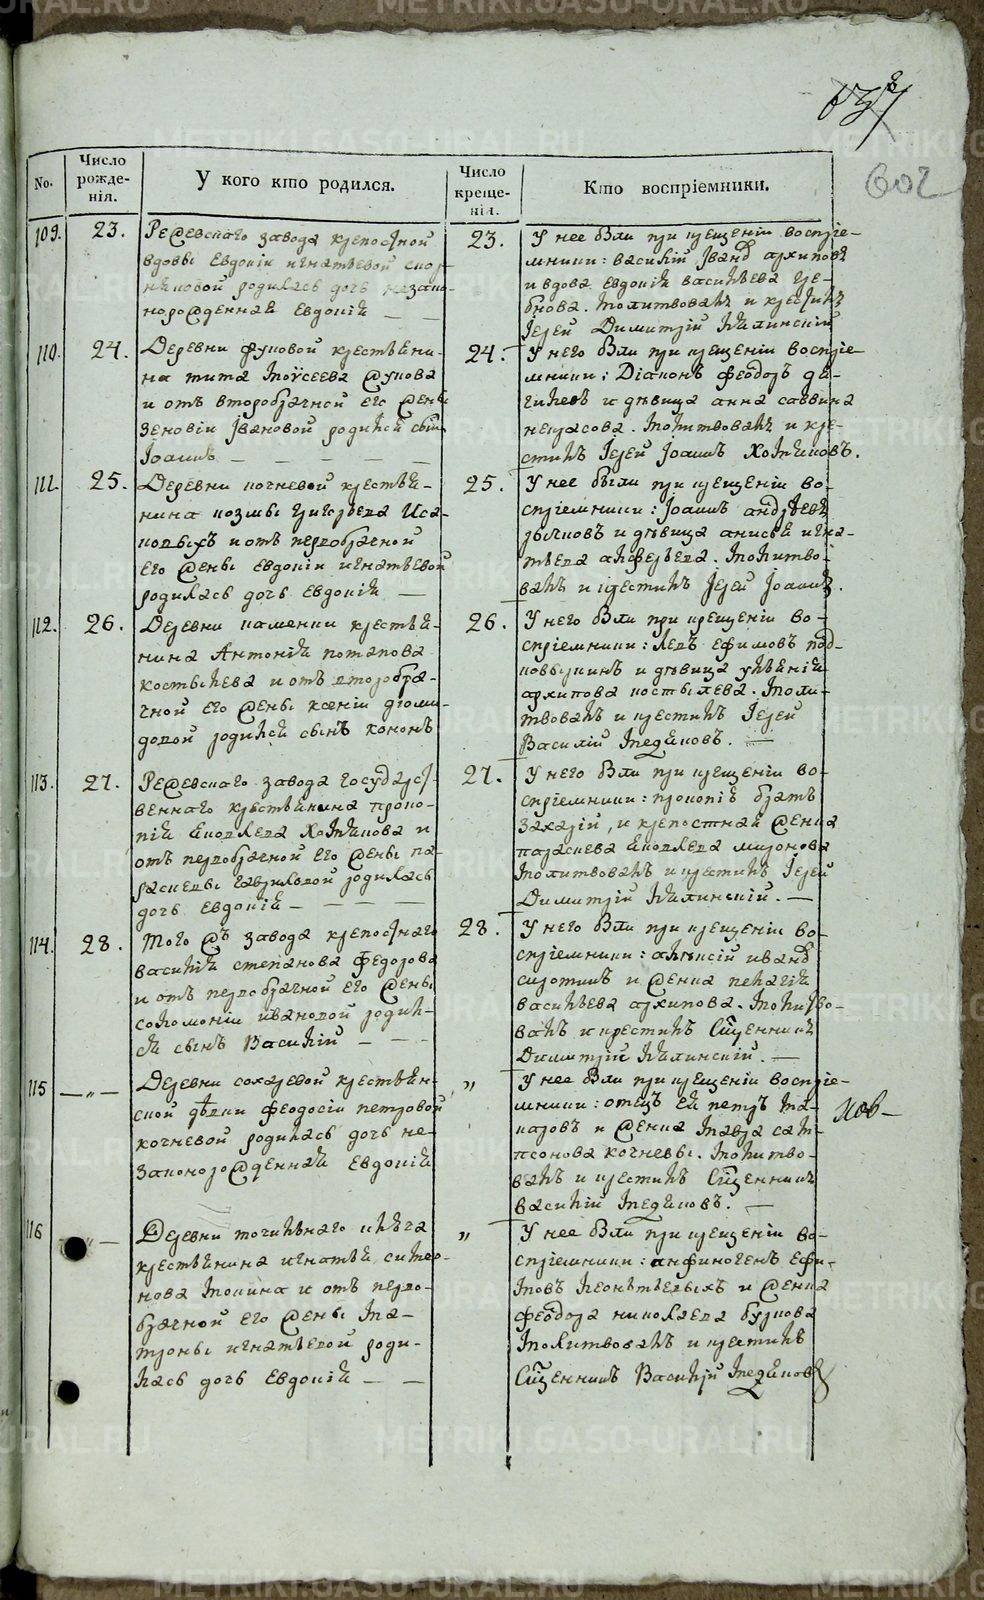 602
No.
Число рожде-нія.
У кого кто родился.
Число креще-нія.
Кто воспріемники.
109.
23.
Режевскаго завода крепостной
вдовы Евдокіи игнатьевой
родилась дочь незако-
норожденная Евдокія
23.
У нее были при крещеніи воспріе-
мники: василій Іванов архиповъ
и вдова Евдокія васильева
Молитвовалъ и крестилъ
Іерей Димитрій
110.
24.
Деревни фуковой крестьяни-
на тита Моѵсеева
и отъ второбрачной его жены
Зеновіи Івановой родился сынъ
Іоаннъ
24.
У него были при крещеніи воспріе-
мники: Діаконъ Феодоръ
и девица анна саввина
некрасова. Молитвовалъ и кре-
стилъ Іерей Іоаннъ Хотяновъ.
111.
25.
Деревни кочневой крестья-
нина козмы григорьева Иса-
ковыхъ и отъ первобрачной
его жены Евдокіи игнатьевой
родилась дочь Евдокія
25.
У нее были при крещеніи во-
спріемники: Іоаннъ андреевъ
и девица анисья игна-
тьева алферьева. Молитво-
валъ и крестилъ Іерей Іоаннъ.
112.
26.
Деревни каменки крестья-
нина Антонія потапова
костылева и отъ второбра-
чной его жены ксеніи
родился сынъ кононъ
26.
У него были при крещеніи во-
спріемники: левъ ефимовъ под-
ковыркинъ и девица уліянія
архипова костылева. Моли-
твовалъ и крестилъ Іерей
Василій Медяковъ.
113.
27.
Режевскаго завода государст-
веннаго крестьянина проко-
пія яковлева Хотянова и
отъ первобрачной его жены па-
расковы гавриловой родилась
дочь Евдокія
27.
У него были при крещеніи во-
спріемники: прокопія братъ
Захарій, и крепостная женка
парасковья яковлева миронова
Молитвовалъ и крестилъ Іерей
Димитрій
114.
28.
Того жъ завода крепостнаго
василія степанова федорова
и отъ первобрачной его жены
соломоніи ивановой родил-
ся сынъ Василій
28.
У него были при крещеніи во-
спріемники: алексій иванов
сиротинъ и женка пелагія
васильева архипова. Молитво-
валъ и крестилъ Священникъ
Димитрій
115
— „ —
Деревни сохаревой крестьян-
ской девки феодосіи петровой
кочневой родилась дочь не-
законорожденная Евдокія
„
У нее были при крещеніи воспріе-
мники: отецъ ея петръ Ма-
каровъ и женка Мавра сам-
псонова кочневы. Молитво-
валъ и крестилъ Священникъ
василій Медяковъ.
116
„ —
Деревни точильнаго ключа
крестьянина игнатья симео-
нова Мокина и отъ перво-
брачной его жены Ма-
троны игнатьевой роди-
лась дочь Евдокія
„
У нее были при крещеніи во-
спріемники: анфиногенъ Ефи-
мовъ леонтьевыхъ и женка
феодора николаева буркова
Молитвовалъ и крестилъ
Священникъ Василій Медяковъ
METRIKI.GASO-URAL.RU